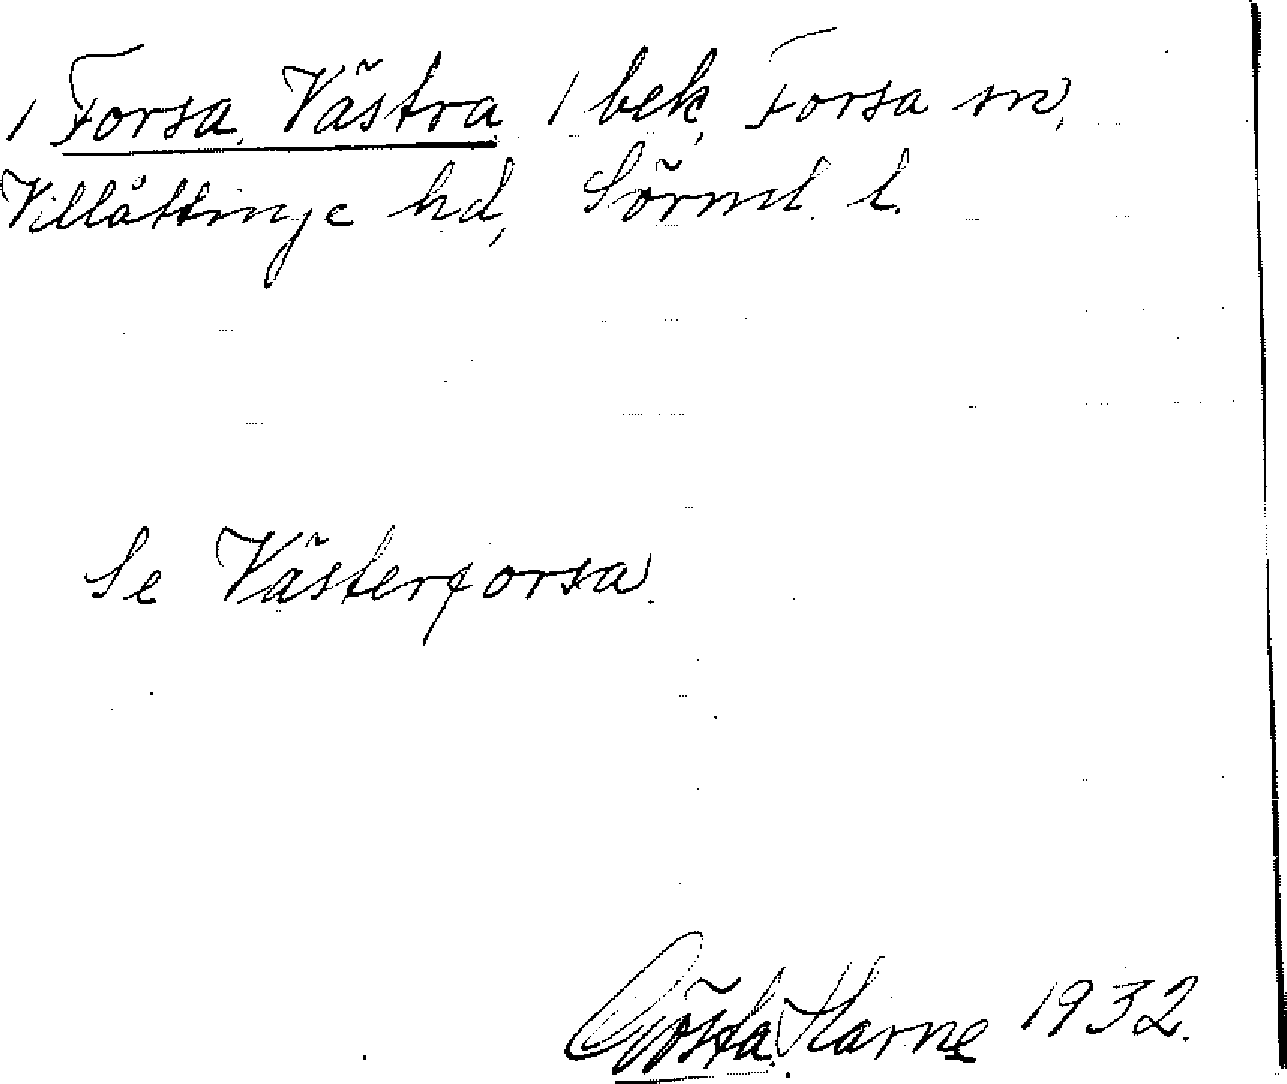 / Forsa, Västra / bek, Forsa sn,
Villåttinge hd, Sörml. l.
Se Västerforsa.
Gösta Harne 1932.